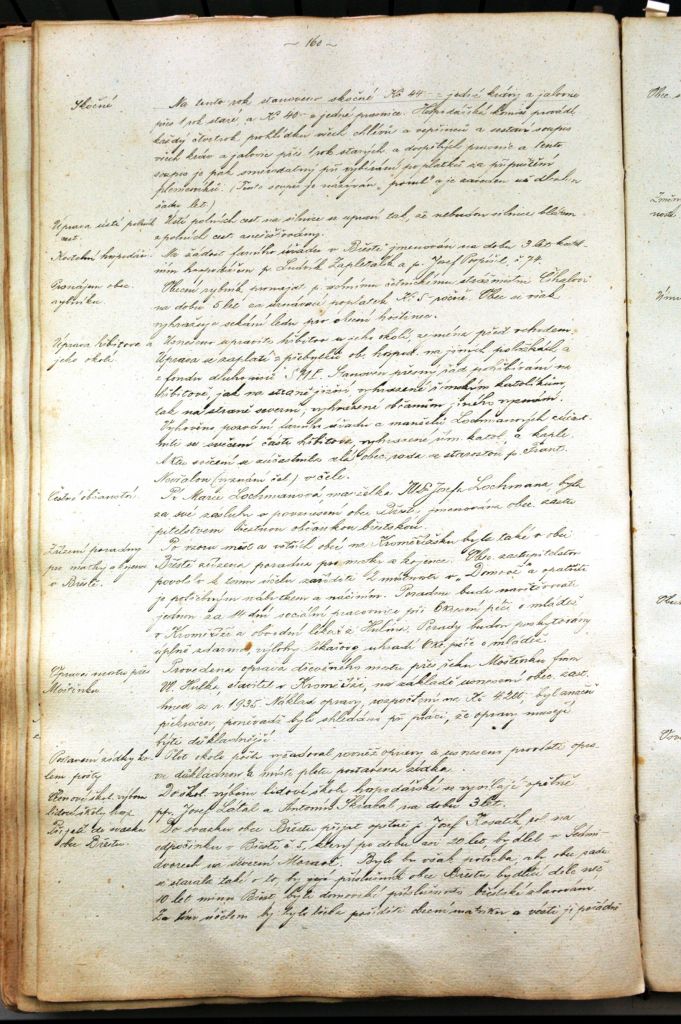 ~ 160 ~
Skočné
Na tento rok stanoveno skočné Kč 44·- z jedné krávy a jalovice
přes 1 rok staré a Kč 40·- z jedné prasnice. Hospodářská komise provádí
každý čtvrtrok prohlídku všech chlévů a vepřinců a sestaví soupis
všech krav a jalovic přes 1 rok starých a dospělých prasnic a tento
soupis je pak směrodatný při vybírání poplatků za připuštění
plemeníků. (Tento soupis je nazýván a je zaveden už dlouhou
řadu let.)
Úprava ústí polních
cest.
Ústí polních cest na silnice se upraví tak, že nebudou silnice blátem
z polních cest znečišťovány.
Kostelní hospodář.
Na žádost farního úřadu v Břestě jmenován na dobu 3 let kostel-
ním hospodářem p. Ludvík Zapletálek a p. Josef Pospíšil č. 74.
Pronájem obec.
rybníka.
Obecní rybník pronajat p. vrchnímu četnickému strážmistru Čihalovi
na dobu 5 let za uznávací poplatek Kč 5·- ročně. Obec si však
vyhražuje sekání ledu pro obecní hostinec.
Úprava hřbitova a
jeho okolí.
Usneseno upraviti hřbitov a jeho okolí, zejména před vchodem.
Úprava se zaplatí z přebytků obc. hospod. na jiných položkách a
z fondu duchovního. Stanoven přesný řád pohřbívání na
hřbitově, jak na straně jižní vyhrazené římským katolíkům,
tak na straně severní, vyhrazené občanům jiného vyznání.
Vyhověno pozvání farního úřadu a manželů Lochmanových zúčast-
niti se svěcení části hřbitova, vyhrazené řím. katol. a kaple.
Aktu svěcení se zúčastnila celá obec. rada se starostou p. Frant.
v čele.
Čestné občanství.
Pí Marie Lochmanová, manželka MUDr Josefa Lochmana byla
za své zásluhy o povznesení obce Břestu, jmenována obec. zastu-
pitelstvem čestnou občankou břesteckou.
Zřízení poradny
pro matky a kojence
v Břestě.
Po vzoru měst a větších obcí na Kroměřížsku byla také v obci
Břestě zřízena poradna pro matky a kojence. Obec. zastupitelstvo
povolilo k tomu účelu zaříditi 2 místnosti v „Domově" a opatřiti
je potřebným nábytkem a náčiním. Poradnu bude navštěvovati
jednou za 14 dní sociální pracovnice při Okresní péči o mládež
v Kroměříži a obvodní lékař z Hulína. Porady budou poskytovány
úplně zdarma, výlohy lékařovy uhradí Okr. péče o mládež.
Oprava mostu přes
Moštěnku
Provedena oprava dřevěného mostu přes řeku Moštěnku firmou
M. Hulka, stavitel v Kroměříži, na základě usnesení obec. zast.
hned z r. 1935. Náklad opravy, rozpočtený na Kč 4200, byl značně
překročen, poněvadž bylo shledáno při práci, že opravy musejí
býti důkladnější.
Postavení zídky ko-
lem pošty
Plot okolo pošty vyžadoval rovněž opravy a usneseno provésti opra-
vu důkladnou a místo plotu postavena zídka.
Členové škol. výboru
lidové školy hosp.
Do škol. výboru lidové školy hospodářské se vysílají opětně
pp. Josef Látal a Antonín Skřabal na dobu 3 let.
Přijetí do svazku
obce Břestu.
Do svazku obce Břestu přijat opětně p. Josef Kovařík, pol. na
odpočinku v Břestě č. 5, který po dobu asi 20 let, bydlel v Sedmi-
dvorech na severní Moravě. Bylo by však potřeba, aby obec. rada
se starala také o to, by její příslušníci obce Břestu bydlící déle než
10 let mimo Břest, byli domovské příslušnosti břestské zbavováni.
Za tím účelem by bylo třeba poříditi obecní matriku a vésti ji pořádně